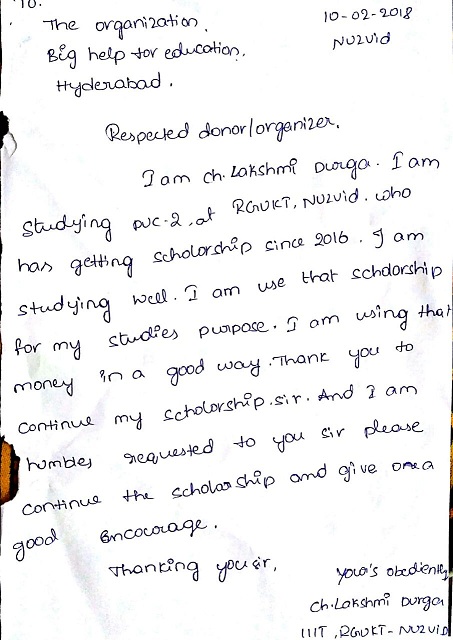 To.
The organization,
Big help for education,
Hyderabad.
10-02-2018
Nuzvid
Respected donor/organizer.
I am ch. Lakshmi Durga. I am
studying puc-2, at RGUKT, Nuzvid. who
has getting scholorship since 2016. I am
studying well. I am use that scholorship
for my studies purpose. I am using that
money in a good way. Thank you to
continue my scholorship.sir. And I am
humbles requested to you sir please
continue the scholarship and give one a
good Encocorage.
Thanking you sir,
your's obediently
ch. Lakshmi Durga
IIIT, RGUKT-NUZVID